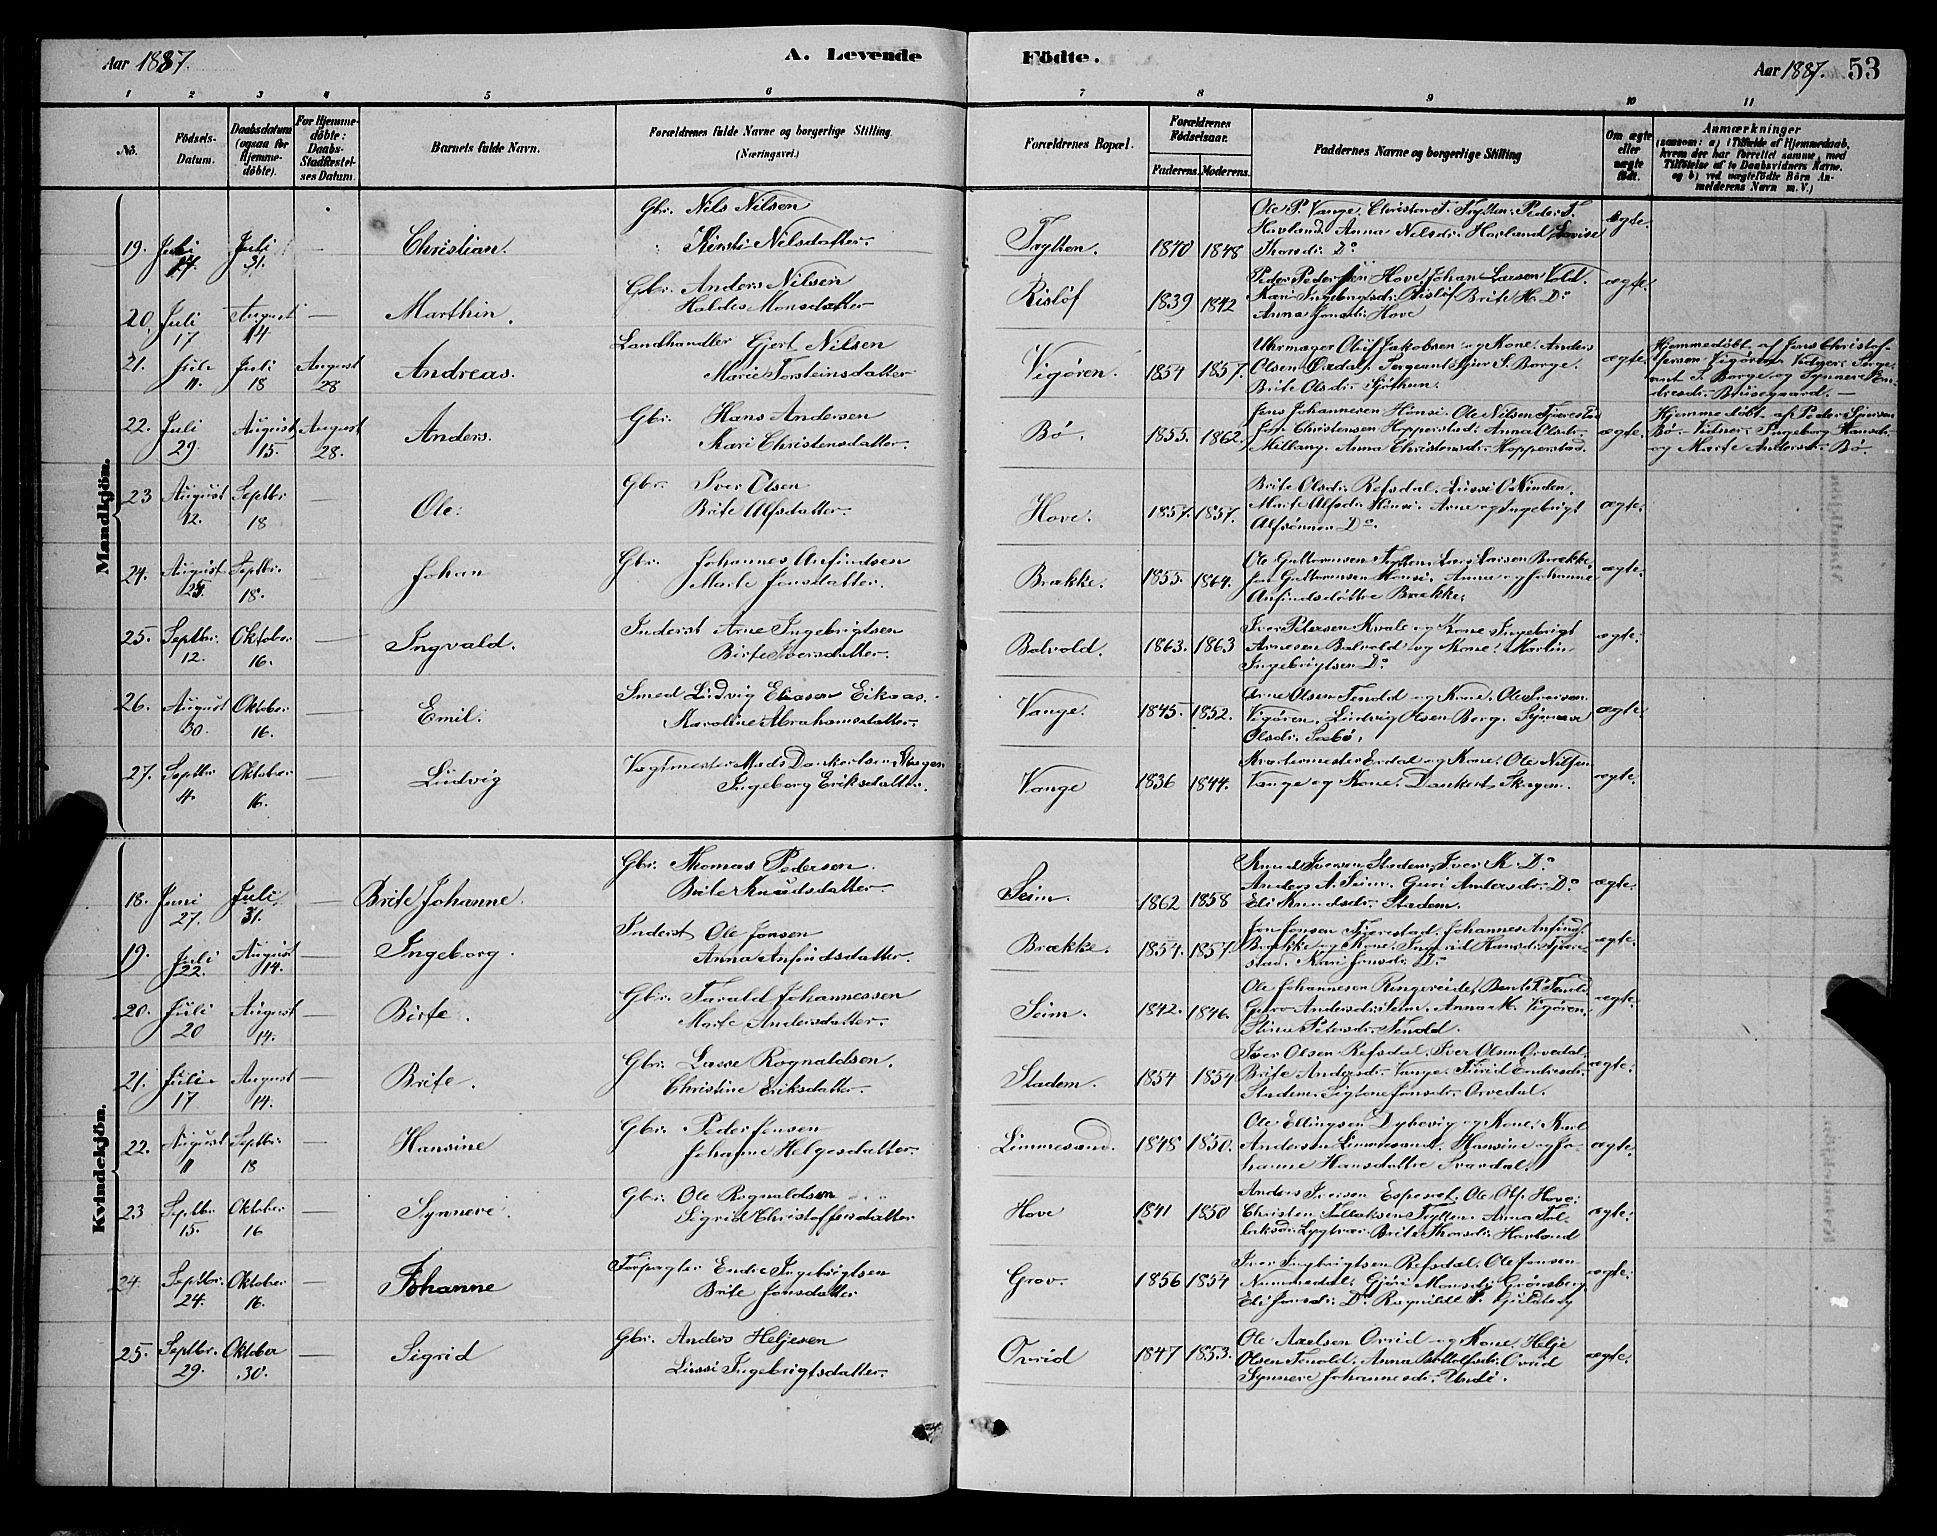 Aar 1887. A. Levende Födte. Aar 1887. 53
1 2 3 4 5 6 7 8 9 10 11
No. Födsels-Datum. Daabsdatum (ogsaa for Hjemmedöbte). For Hjemmedöbte: Daabs-Stadfæstelses Datum. Barnets fulde Navn. Forældrenes fulde Navne og borgerlige Stilling. (Næringsvei.) Forældrenes Bopæl. Forældrenes Födselsaar. Faderens. Moderens. Faddernes Navne og borgerlige Stilling Om ægte eller uægte födt. Anmærkninger (saasom: a) i Tilfælde af Hjemmedaab, hvem der har forrettet samme, med Tilföielse af to Daabsvidners Navne, og b) ved uægtefödte Börn Anmelderens Navn m. V.)
Mandkjön.
19. Juli 14. Juli 31. — Christian. Gbr. Nils Nilsen
Kirsti Nilsdatter. Trytten. 1840 1848 Ole P. Vange. Christen T. Trytten. Peder T.
Hovland. Anna Nilsdr. Hovland Lovise
Thorsdr. Do ægte.
20. Juli 17 August 14 — Marthin. Gbr. Anders Nilsen
Haldis Monsdatter Risløf 1839 1842 Peder Pedersen Hove. Johan Larsen Vold.
Kari Ingebrigtsdr. Risløf. Brite H. Do
Anna Jonsdr. Hove ægte.
21. Juli 11. Juli 18 August 28 Andreas. Landhandler Gjert Nilsen
Marie Torsteinsdatter Vigøren. 1854 1857. Uhrmager Oluf Jakobsen og Kone. Anders
Olsen Sergeant Sjur S. Borge.
Brite Olsdr. ægte. Hjemmedöbt af Jens Christof-
fersen Vigøren. Vidner: Serge-
ant S. Borge og Synneve En-
dresdr. —
22. Juli 29. August 15. August 28. Anders. Gbr. Hans Andersen
Kari Christensdatter. Bø. 1855. 1862. Jens Johannesen Hönsi. Ole Nilsen
Jon Christensen Hopperstad. Anna Olsdr.
Anna Christensdr. Hopperstad. ægte. Hjemmedöbt af Peder
Bø. Vidner: Ingeborg Hansdr.
og Marte Andersdr. Bø.
23 August 12. Septbr 18 — Ole. Gbr. Iver Olsen
Brite Alfsdatter. Hove. 1857. 1857. Brite Olsdr. Refsdal. Lussi O.
Marte Alfsdr. Hönsi. Arne og Ingebrigt
Alfsönner Do. ægte.
24. August 25. Septbr. 18. — Johan Gbr. Johannes Anfindsen
Marte Jonsdatter. Brække. 1855. 1864. Ole Guttormsen Trytten. Lars Larsen Brække
Jon Guttormsen Hönsi. Anna og Johanne
Anfindsdöttre Brække. ægte.
25. Septbr. 12. Oktober 16. — Ingvald. Inderst Arne Ingebrigtsen
Birte Iversdatter. Bolvold. 1863. 1863 Iver Petersen Kvale og Kone. Ingebrigt
Arnesen Bolvold og Kone. Martin
Ingebrigtsen Do ægte.
26. August 30. Oktober 16. — Emil. Smed Ludvig Eliasen Eikaas.
Karoline Abrahamsdatter. Vange. 1845. 1852. Arne Olsen Tenold og Kone. Ole Iversen
Vigøren. Ludvig Olsen Berg. Synneve
Olsdr. ægte.
27. Septbr 4. Oktober 16. — Ludvig Vagtmester Mads Dankertsen Skagen
Ingeborg Eriksdatter. Vange 1836 1844. Kvartermester og Kone. Ole Nilsen
Vange og Kone. Dankert Skagen. ægte.
Kvindekjön.
18. Juni 27. Juli 31. — Brite Johanne. Gbr. Thomas Pedersen.
Brite Knudsdatter Seim. 1862 1858 Knud Iversen Stadem. Iver K. Do
Anders A. Seim. Guri Andersdr. Do
Eli Knudsdr. Stadem. ægte.
19. Juli 22. August 14. — Ingeborg. Inderst Ole Jonsen
Anna Anfindsdatter. Brække. 1854. 1857. Jon Jonsen Tjørestad. Johannes Anfind.
Brække og Kone. Ingrid Hansdr. Tjøre-
stad. Kari Jonsdr. Do ægte.
20. Juli 20 August 14. — Birte. Gbr. Tarald Johannessen
Marte Andersdatter. Seim. 1842. 1846. Ole Johannesen Ringereide. Bent T. Tenold
Guro Andersdr. Seim. Anna M. Vigøren.
Stina Petersdr. Tenold. ægte.
21. Juli 17 August 14. — Brite. Gbr. Lasse Rognaldsen.
Christine Eriksdatter. Stadem. 1854 1854 Iver Olsen Refsdal. Iver Olsen Orvedal.
Brite Andersdr. Vange. Turid Endresdr.
Stadem. Jonsdr. Orvedal. ægte.
22. August 11 Septbr. 18 — Hansine Gbr. Peder Jensen
Johanne Helgesdatter. Limmesand. 1848 1850. Ole Ellingsen Dybevig og Kone. Karl
Andersen Limmesand. Hansine og Jo-
hanne Hansdöttre Svardal. ægte.
23 Septbr 15. Oktober 16 — Synneve. Gbr. Ole Rognaldsen
Sigrid Christoffersdatter Hove 1841 1850 Anders Iversen Espeset. Ole Hove.
Christen Tollaksen Trytten. Anna Tol-
laksdr. Brite Thorsdr. Hovland ægte.
24. Septbr. 24. Oktober 16. — Johanne Forpagter Endre Ingebrigtsen
Brite Jonsdatter Grov. 1856 1854 Iver Ingbrigtsen Refsdal. Ole Jonsen
Nummedal. Gjöri Monsdr. Grönsberg
Eli Jonsdr. Do Ragnilde T. ægte.
25. Septbr. 29. Oktober 30. — Sigrid Gbr. Anders Heljesen
Lussi Ingebrigtsdatter. Orvid 1847 1853. Ole Axelsen Orvid og Kone. Helje
Olsen Tenold. Anna Orvid
Synneve Johannesdr. Undi. ægte.